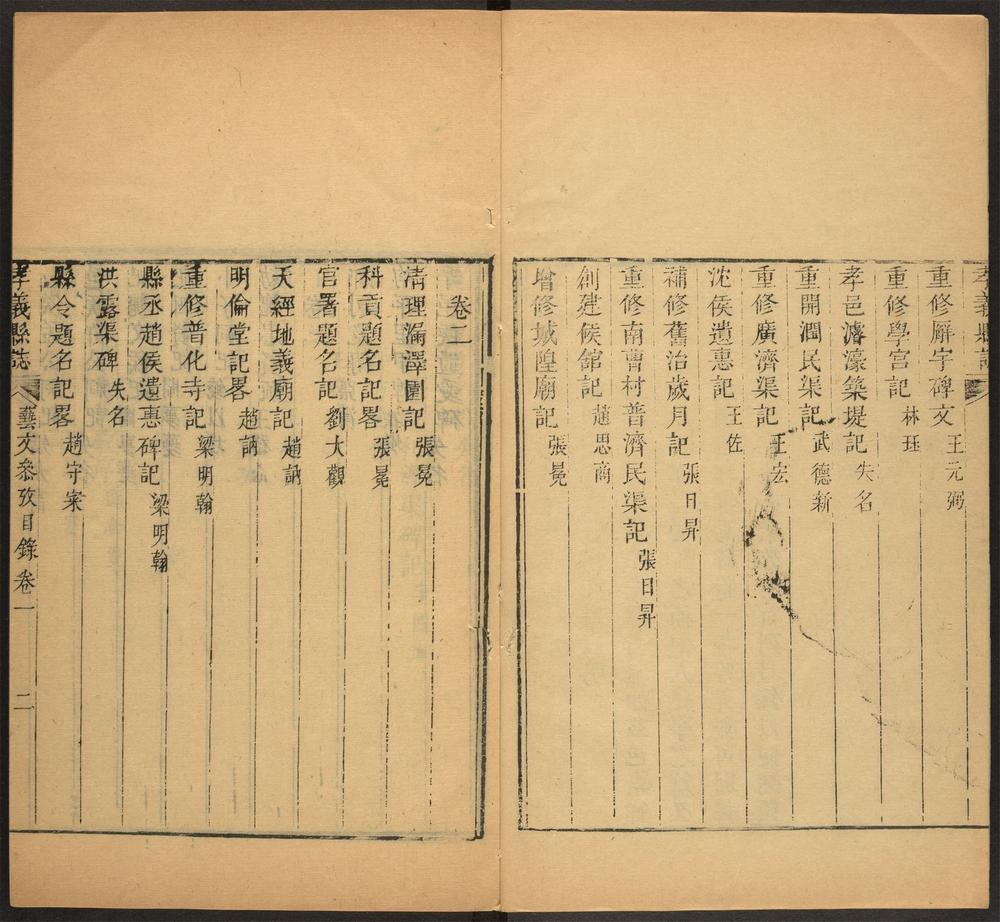 孝義縣誌
重修廨宇碑文 王元弼
重修學宮記 林珏
孝邑濬濠築堤記 失名
重開潤民渠記 武德新
重修廣濟渠記 王宏
沈侯遺惠記 王佐
補修舊治歲月記 張日昇
重修南曹村普濟民渠記 張日昇
創建候館記 趙思商
增修城隍廟記 張冕
卷二
清理漏澤園記 張冕
科貢題名記畧 張冕
官署題名記 劉大觀
天經地義廟記 趙訥
明倫堂記畧 趙訥
重修普化寺記 梁明翰
縣丞趙侯遺惠碑記 梁明翰
洪露渠碑 失名
縣令題名記畧 趙守寀
孝義縣誌 藝文參攷目錄 卷一 二